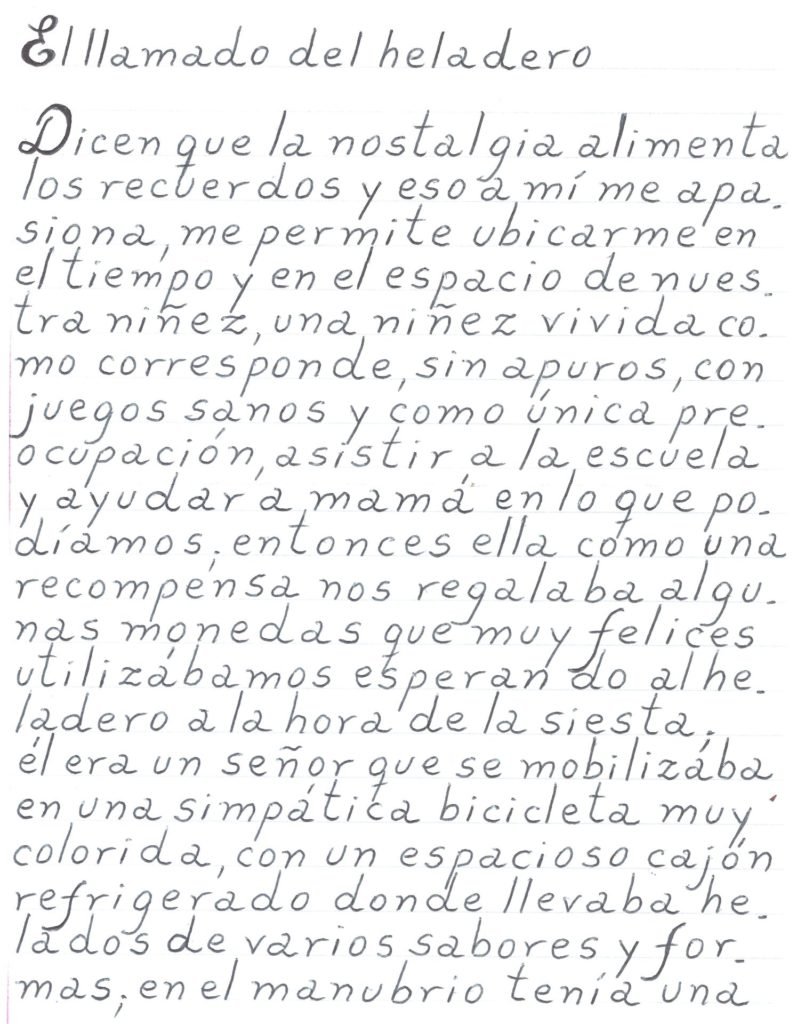 El llamado del heladero
Dicen que la nostalgia alimenta
los recuerdos y eso a mí me apa-
siona, me permite ubicarme en
el tiempo y en el espacio de nues-
tra niñez, una niñez vivida co-
mo corresponde, sin apuros, con
juegos sanos y como única pre-
ocupación, asistir a la escuela
y ayudar a mamá en lo que po-
díamos; entonces ella como una
recompensa nos regalaba algu-
nas monedas que muy felices
utilizábamos esperando al he-
ladero a la hora de la siesta;
él era un señor que se mobilizába
en una simpática bicicleta muy
colorida, con un espacioso cajón
refrigerado donde llevaba he-
lados de varios sabores y for-
mas; en el manubrio tenía una